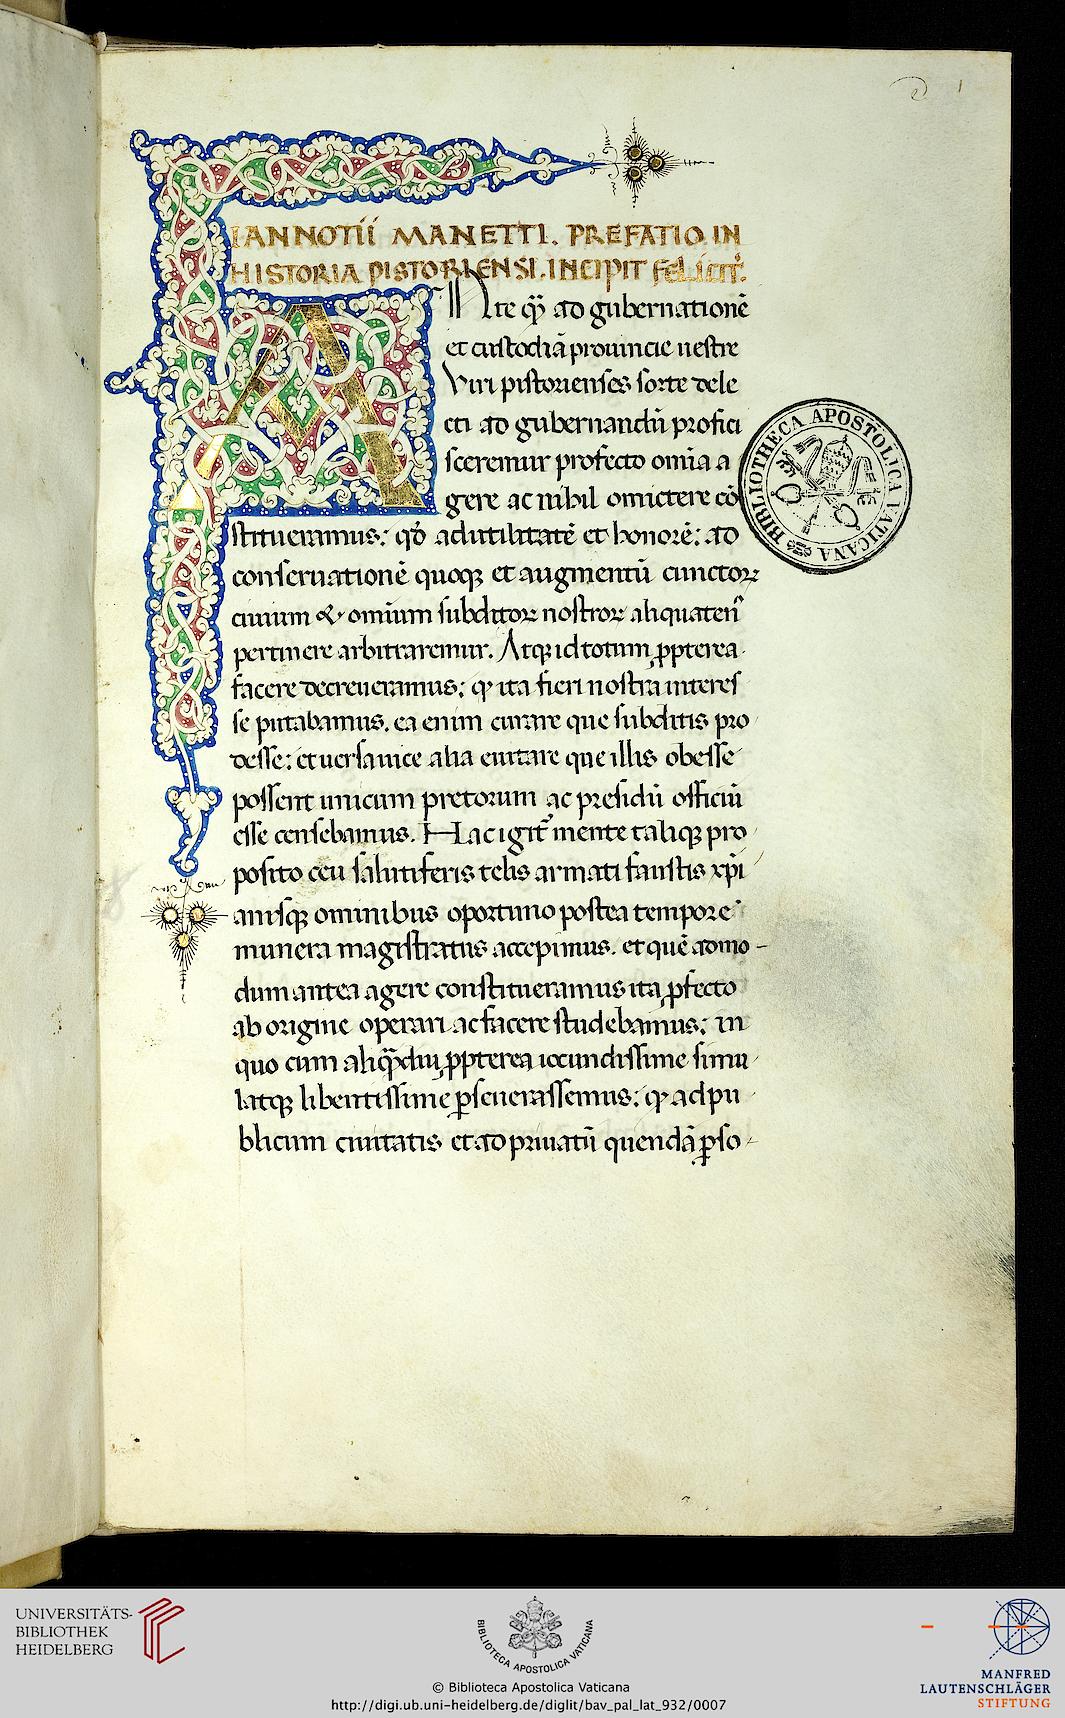 1
IANNOTII MANETTI. PREFATIO IN
HISTORIA PISTORIENSI. INCIPIT FELICIT̃.
ANte qᷓ ad gubernationē
et custodiā prouincie uestre
Viri pistorienses sorte dele
cti ad gubernandū profici
sceremur profecto omīa a
gere ac nihil omictere cō
stitueramus: qđ ad utilitatē et honorē: ad
conseruationē quoqꝫ et augmentū cunctoꝝ
ciuium & omnium subditoꝝ nostroꝝ aliquaten᾿
pertinere arbitraremur. Atqꝫ id totum ꝓpterea
facere decreueramus: ꝙ ita fieri nostra interes
se putabamus. ea enim curare que subditis pro
desse: et uersa uice alia euitare que illis obesse
possent unicum pretorum ac presidū officiū
esse censebamus. Hac igit᾿ mente taliqꝫ pro
posito ceu salutiferis telis armati faustis xp̄i
anisqꝫ ominibus oportuno postea tempore
munera magistratus accepimus. et quē admo-
dum antea agere constitueramus ita ꝓfecto
ab origine operari ac facere studebamus: in
quo cum aliqᷓdiu ꝓpterea iocundissime simu
latqꝫ libentissime ꝑseuerassemus: ꝙ ad pu
blicum ciuitatis et ad priuatū quendā ꝑso-
BIBLIOTHECA APOSTOLICA VATICANA
UNIVERSITÄTS-
BIBLIOTHEK
HEIDELBERG
BIBLIOTECA APOSTOLICA VATICANA
© Biblioteca Apostolica Vaticana
http://digi.ub.uni-heidelberg.de/diglit/bav_pal_lat_932/0007
MANFRED
LAUTENSCHLÄGER
STIFTUNG